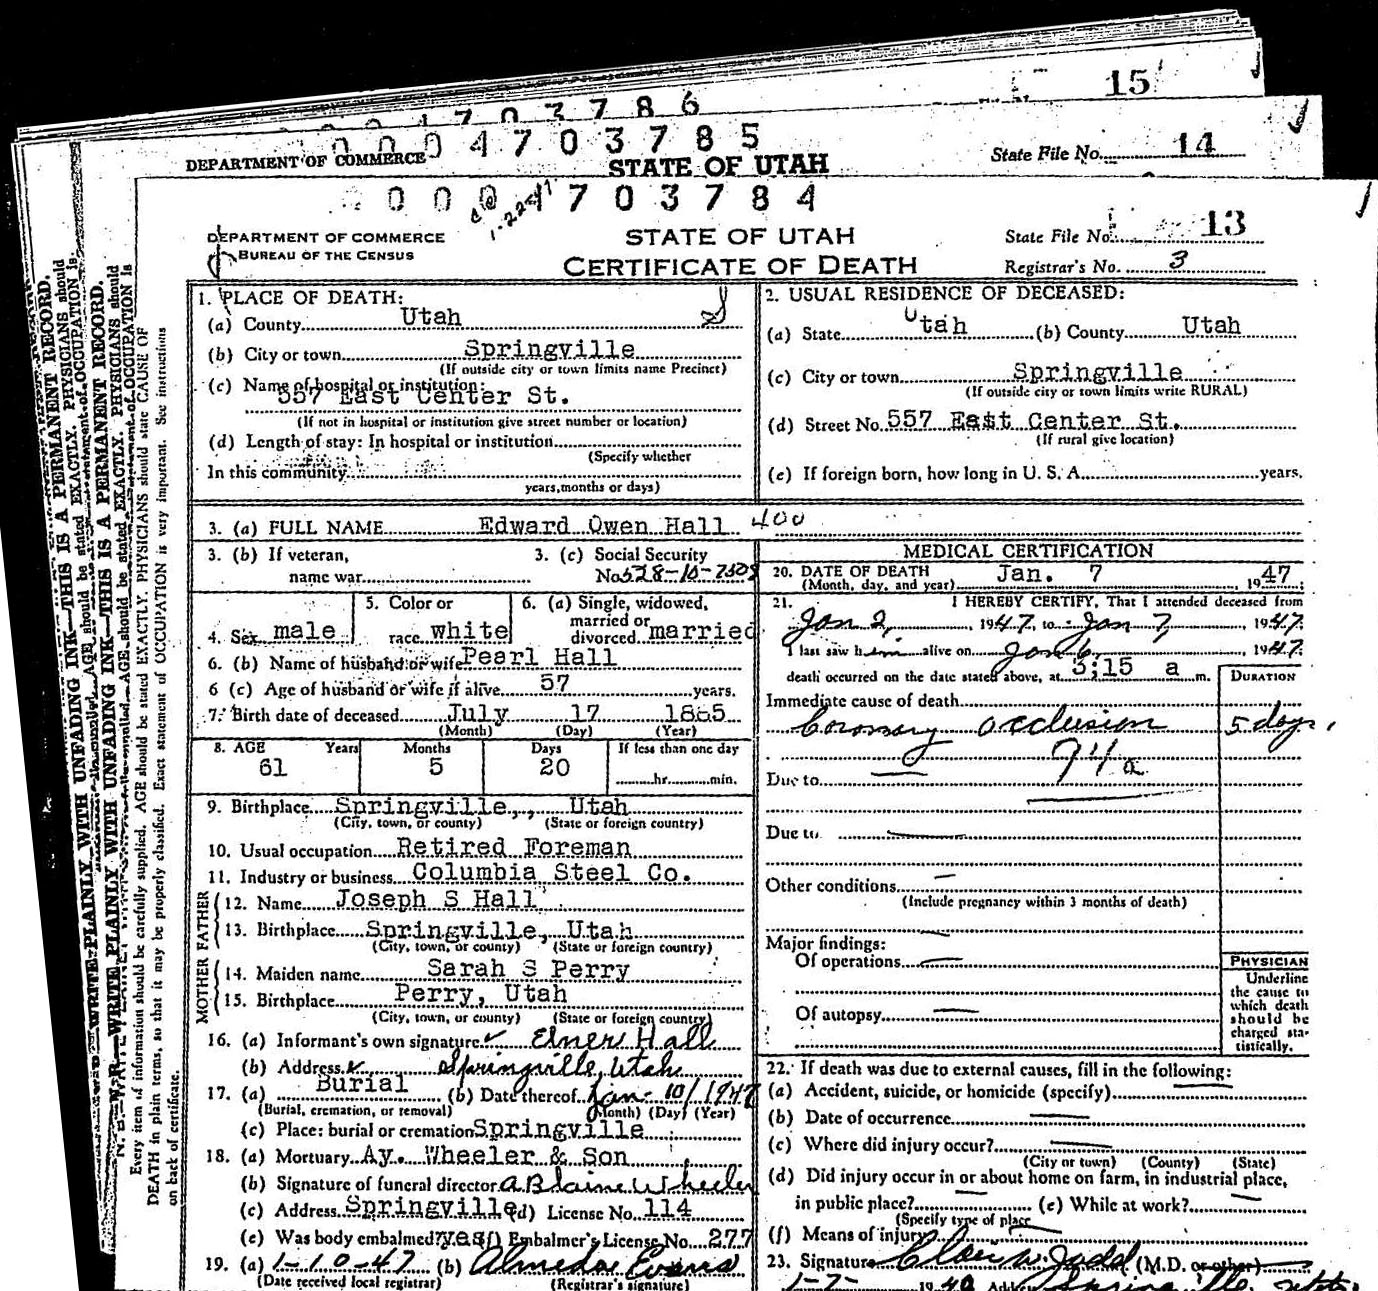 15
0 0 0 4 7 0 3 7 8 6
0 0 0 4 7 0 3 7 8 5
DEPARTMENT OF COMMERCE STATE OF UTAH State File No. 14
0 0 0 4 7 0 3 7 8 4
1-22-47
DEPARTMENT OF COMMERCE
BUREAU OF THE CENSUS
STATE OF UTAH
CERTIFICATE OF DEATH
State File No. 13
Registrar's No. 3
N. B.—WRITE PLAINLY WITH UNFADING INK—THIS IS A PERMANENT RECORD.
Every item of information should be carefully supplied. AGE should be stated EXACTLY. PHYSICIANS should state CAUSE OF
DEATH in plain terms, so that it may be properly classified. Exact statement of OCCUPATION is very important. See instructions
on back of certificate.
1. PLACE OF DEATH:
(a) County Utah
(b) City or town Springville
(If outside city or town limits name Precinct)
(c) Name of hospital or institution:
557 East Center St.
(If not in hospital or institution give street number or location)
(d) Length of stay: In hospital or institution
(Specify whether
In this community
years, months or days)
2. USUAL RESIDENCE OF DECEASED:
(a) State Utah (b) County Utah
(c) City or town Springville
(If outside city or town limits write RURAL)
(d) Street No. 557 East Center St.
(If rural give location)
(e) If foreign born, how long in U. S. A. years.
3. (a) FULL NAME Edward Owen Hall 400
3. (b) If veteran,
name war
3. (c) Social Security
No. 528-10-7308
4. Sex male
5. Color or
race white
6. (a) Single, widowed,
married or
divorced married
6. (b) Name of husband or wife Pearl Hall
6 (c) Age of husband or wife if alive 57 years.
7. Birth date of deceased July 17 1885
(Month) (Day) (Year)
8. AGE Years Months Days If less than one day
61 5 20 hr. min.
9. Birthplace Springville, , Utah
(City, town, or county) (State or foreign country)
10. Usual occupation Retired Foreman
11. Industry or business Columbia Steel Co.
FATHER
12. Name Joseph S Hall
13. Birthplace Springville, Utah
(City, town, or county) (State or foreign country)
MOTHER
14. Maiden name Sarah S Perry
15. Birthplace Perry, Utah
(City, town, or county) (State or foreign country)
16. (a) Informant's own signature Elner Hall
(b) Address Springville, Utah
17. (a) Burial (b) Date thereof Jan- 10/1947
(Burial, cremation, or removal) (Month) (Day) (Year)
(c) Place: burial or cremation Springville
18. (a) Mortuary Ay. Wheeler & Son
(b) Signature of funeral director A Blaine Wheeler
(c) Address Springville (d) License No. 114
(e) Was body embalmed? yes (f) Embalmer's License No. 277
19. (a) 1-10-47 (b) Almeda Evans
(Date received local registrar) (Registrar's signature)
MEDICAL CERTIFICATION
20. DATE OF DEATH Jan. 7 1947
(Month, day, and year)
21. I HEREBY CERTIFY, That I attended deceased from
Jan 2, 1947, to Jan 7, 1947.
I last saw him alive on Jan 6, 1947.
death occurred on the date stated above, at 3;15 a m.
DURATION
Immediate cause of death
Coronary occlusion 5 days.
94a
Due to
Due to
Other conditions
(Include pregnancy within 3 months of death)
Major findings:
Of operations
Of autopsy
PHYSICIAN
Underline
the cause to
which death
should be
charged sta-
tistically.
22. If death was due to external causes, fill in the following:
(a) Accident, suicide, or homicide (specify)
(b) Date of occurrence
(c) Where did injury occur?
(City or town) (County) (State)
(d) Did injury occur in or about home on farm, in industrial place,
in public place? (e) While at work?
(Specify type of place
(f) Means of injury
23. Signature Judd (M.D. or other)
1-7- 1940 Springville, Utah